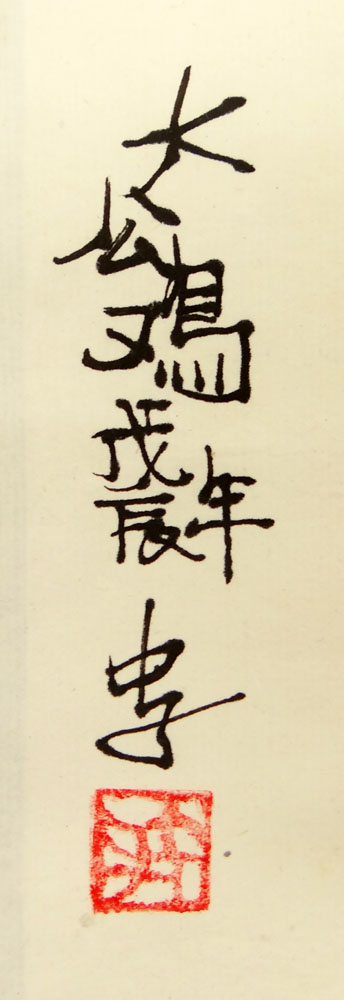 大公鸡
戊辰年